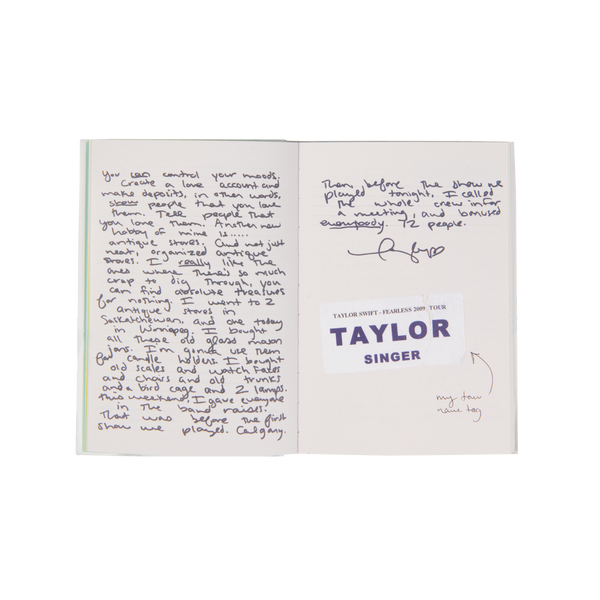 you can control your moods.
Create a love account and
make deposits, in other words,
show people that you love
them. Tell people that
you love them. Another new
hobby of mine is.....
antique stores. (and not just
neat, organized antique
stores. I really like the
ones where there's so much
crap to dig through, you
can find absolute treasures
for nothing. I went to 2
antique stores in
Saskatchewan, and one today
in Winnepeg. I bought
all these old glass mason
jars. I'm gonna use them
for candle holders. I bought
old scales and watch faces
and chairs and old trunks
and a bird cage and 2 lamps.
this weekend, I gave everyone
in the band raises.
That was before the first
show we played. Calgary.
Then before the show we
played tonight, I called
the whole crew in for
a meeting, and bonused
everybody. 72 people.
TAYLOR SWIFT - FEARLESS 2009 TOUR
TAYLOR
SINGER
my tour
name tag